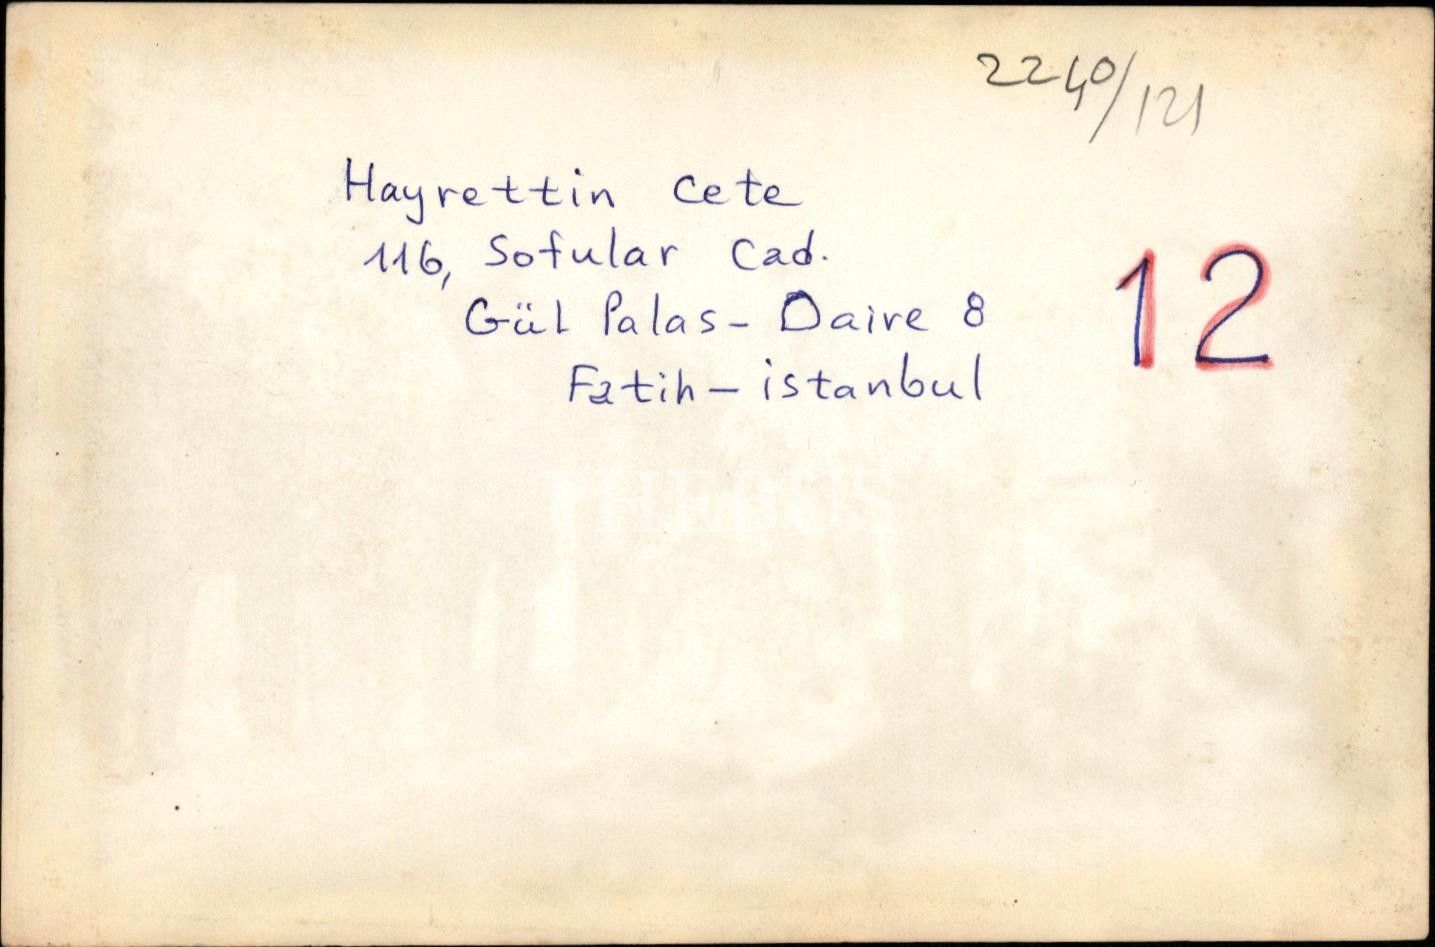 2240/121
Hayrettin Cete
116, Sofular Cad.
12
Gül Palas - Daire 8
Fatih - istanbul
PHEBUS